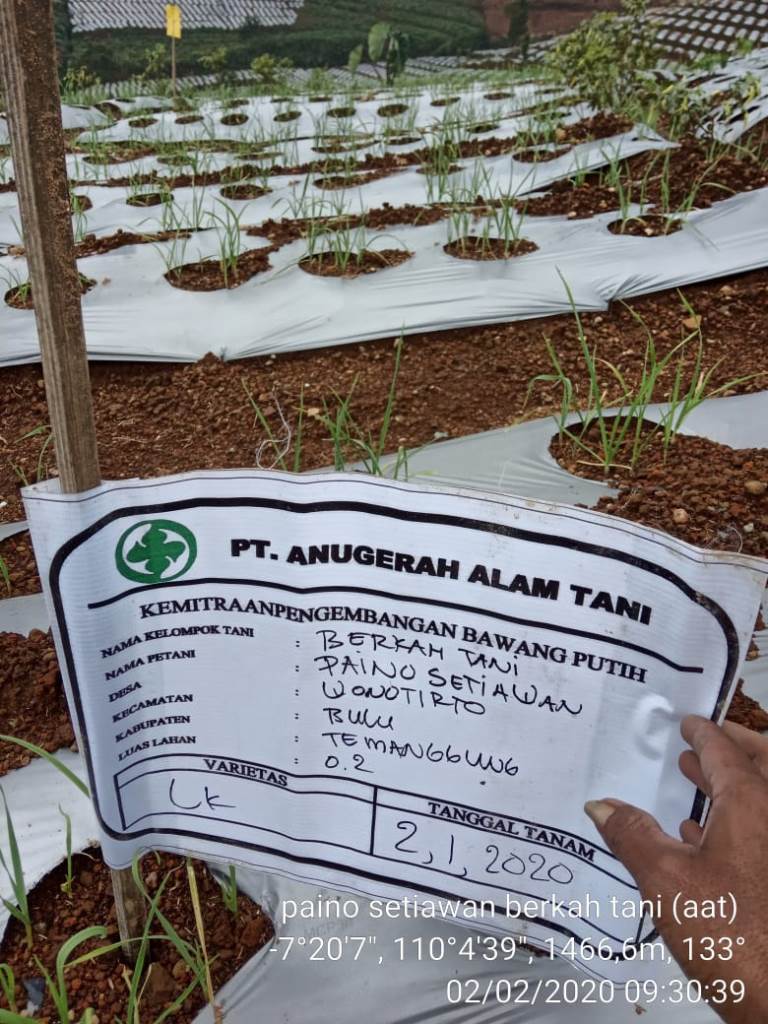 PT. ANUGERAH ALAM TANI
KEMITRAANPENGEMBANGAN BAWANG PUTIH
NAMA KELOMPOK TANI : BERKAH TANI
NAMA PETANI : PAINO SETIAWAN
DESA : WONOTIRTO
KECAMATAN : BULU
KABUPATEN : TEMANGGUNG
LUAS LAHAN : 0.2
VARIETAS
LK
TANGGAL TANAM
2, 1, 2020
paino setiawan berkah tani (aat)
-7°20'7", 110°4'39", 1466,6m, 133°
02/02/2020 09:30:39